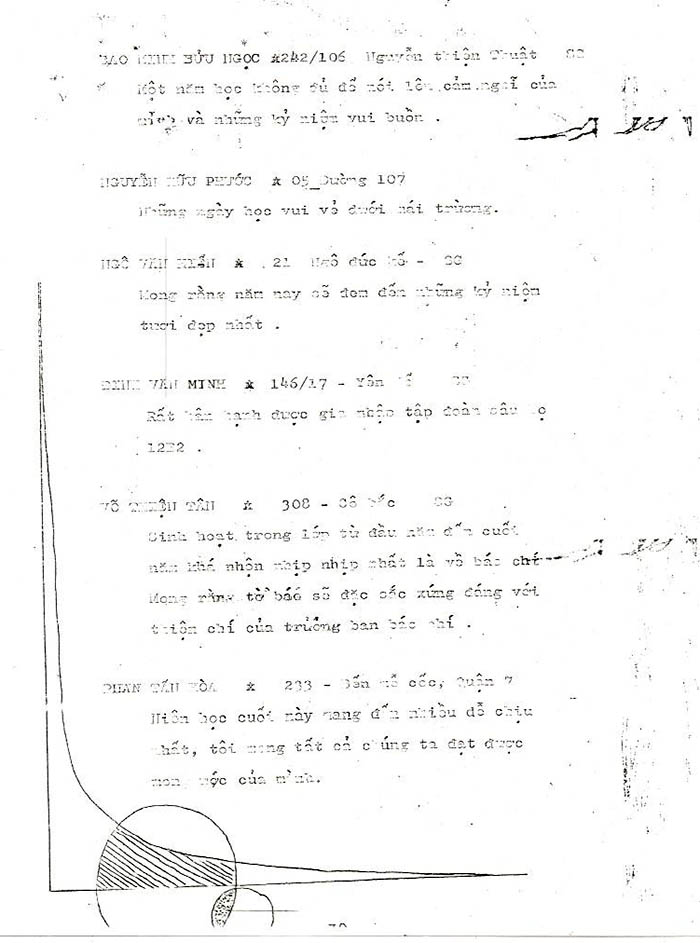 BẢO MINH BỬU NGỌC *242/106 Nguyễn thiện Thuật SG
Một năm học không đủ để nói lên cảm nghĩ của
mình và những kỷ niệm vui buồn .
NGUYỄN HỮU PHƯỚC * 05_Đường 107
Những ngày học vui vẻ dưới mái trường.
NGÔ VĂN * 21 Ngô đức Kế - SG
Mong rằng năm nay sẽ đem đến những kỷ niệm
tươi đẹp nhất .
ĐINH VĂN MINH * 146/17 - Yên Đổ SG
Rất hân hạnh được gia nhập tập đoàn
12B2 .
VÕ THIỆN TÂN * 308 - Cô Bắc SG
Sinh hoạt trong lớp từ đầu năm đến cuối
năm khá nhộn nhịp nhịp nhất là về báo chí
Mong rằng tờ báo sẽ đặc sắc xứng đáng với
thiện chí của trưởng ban báo chí .
PHAN TẤN HÒA * 233 - Bến mễ cốc, Quận 7
Niên học cuối này mang đến nhiều dễ chịu
nhất, tôi mong tất cả chúng ta đạt được
mong ước của mình.